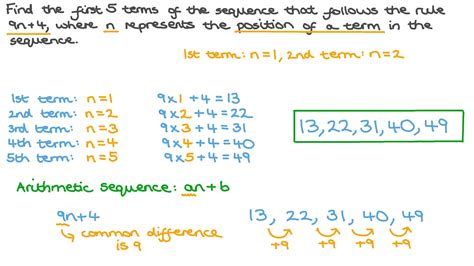 Find the first 5 terms of the sequence that follows the rule
9n+4, where n represents the position of a term in the
sequence.
1st term: n=1, 2nd term: n=2
1st term: n=1 9×1+4=13
2nd term: n=2 9×2+4=22
3rd term: n=3 9×3+4=31
4th term: n=4 9×4+4=40
5th term: n=5 9×5+4=49
13, 22, 31, 40, 49
Arithmetic sequence: an+b
9n+4
common difference
is 9
13, 22, 31, 40, 49
+9 +9 +9 +9